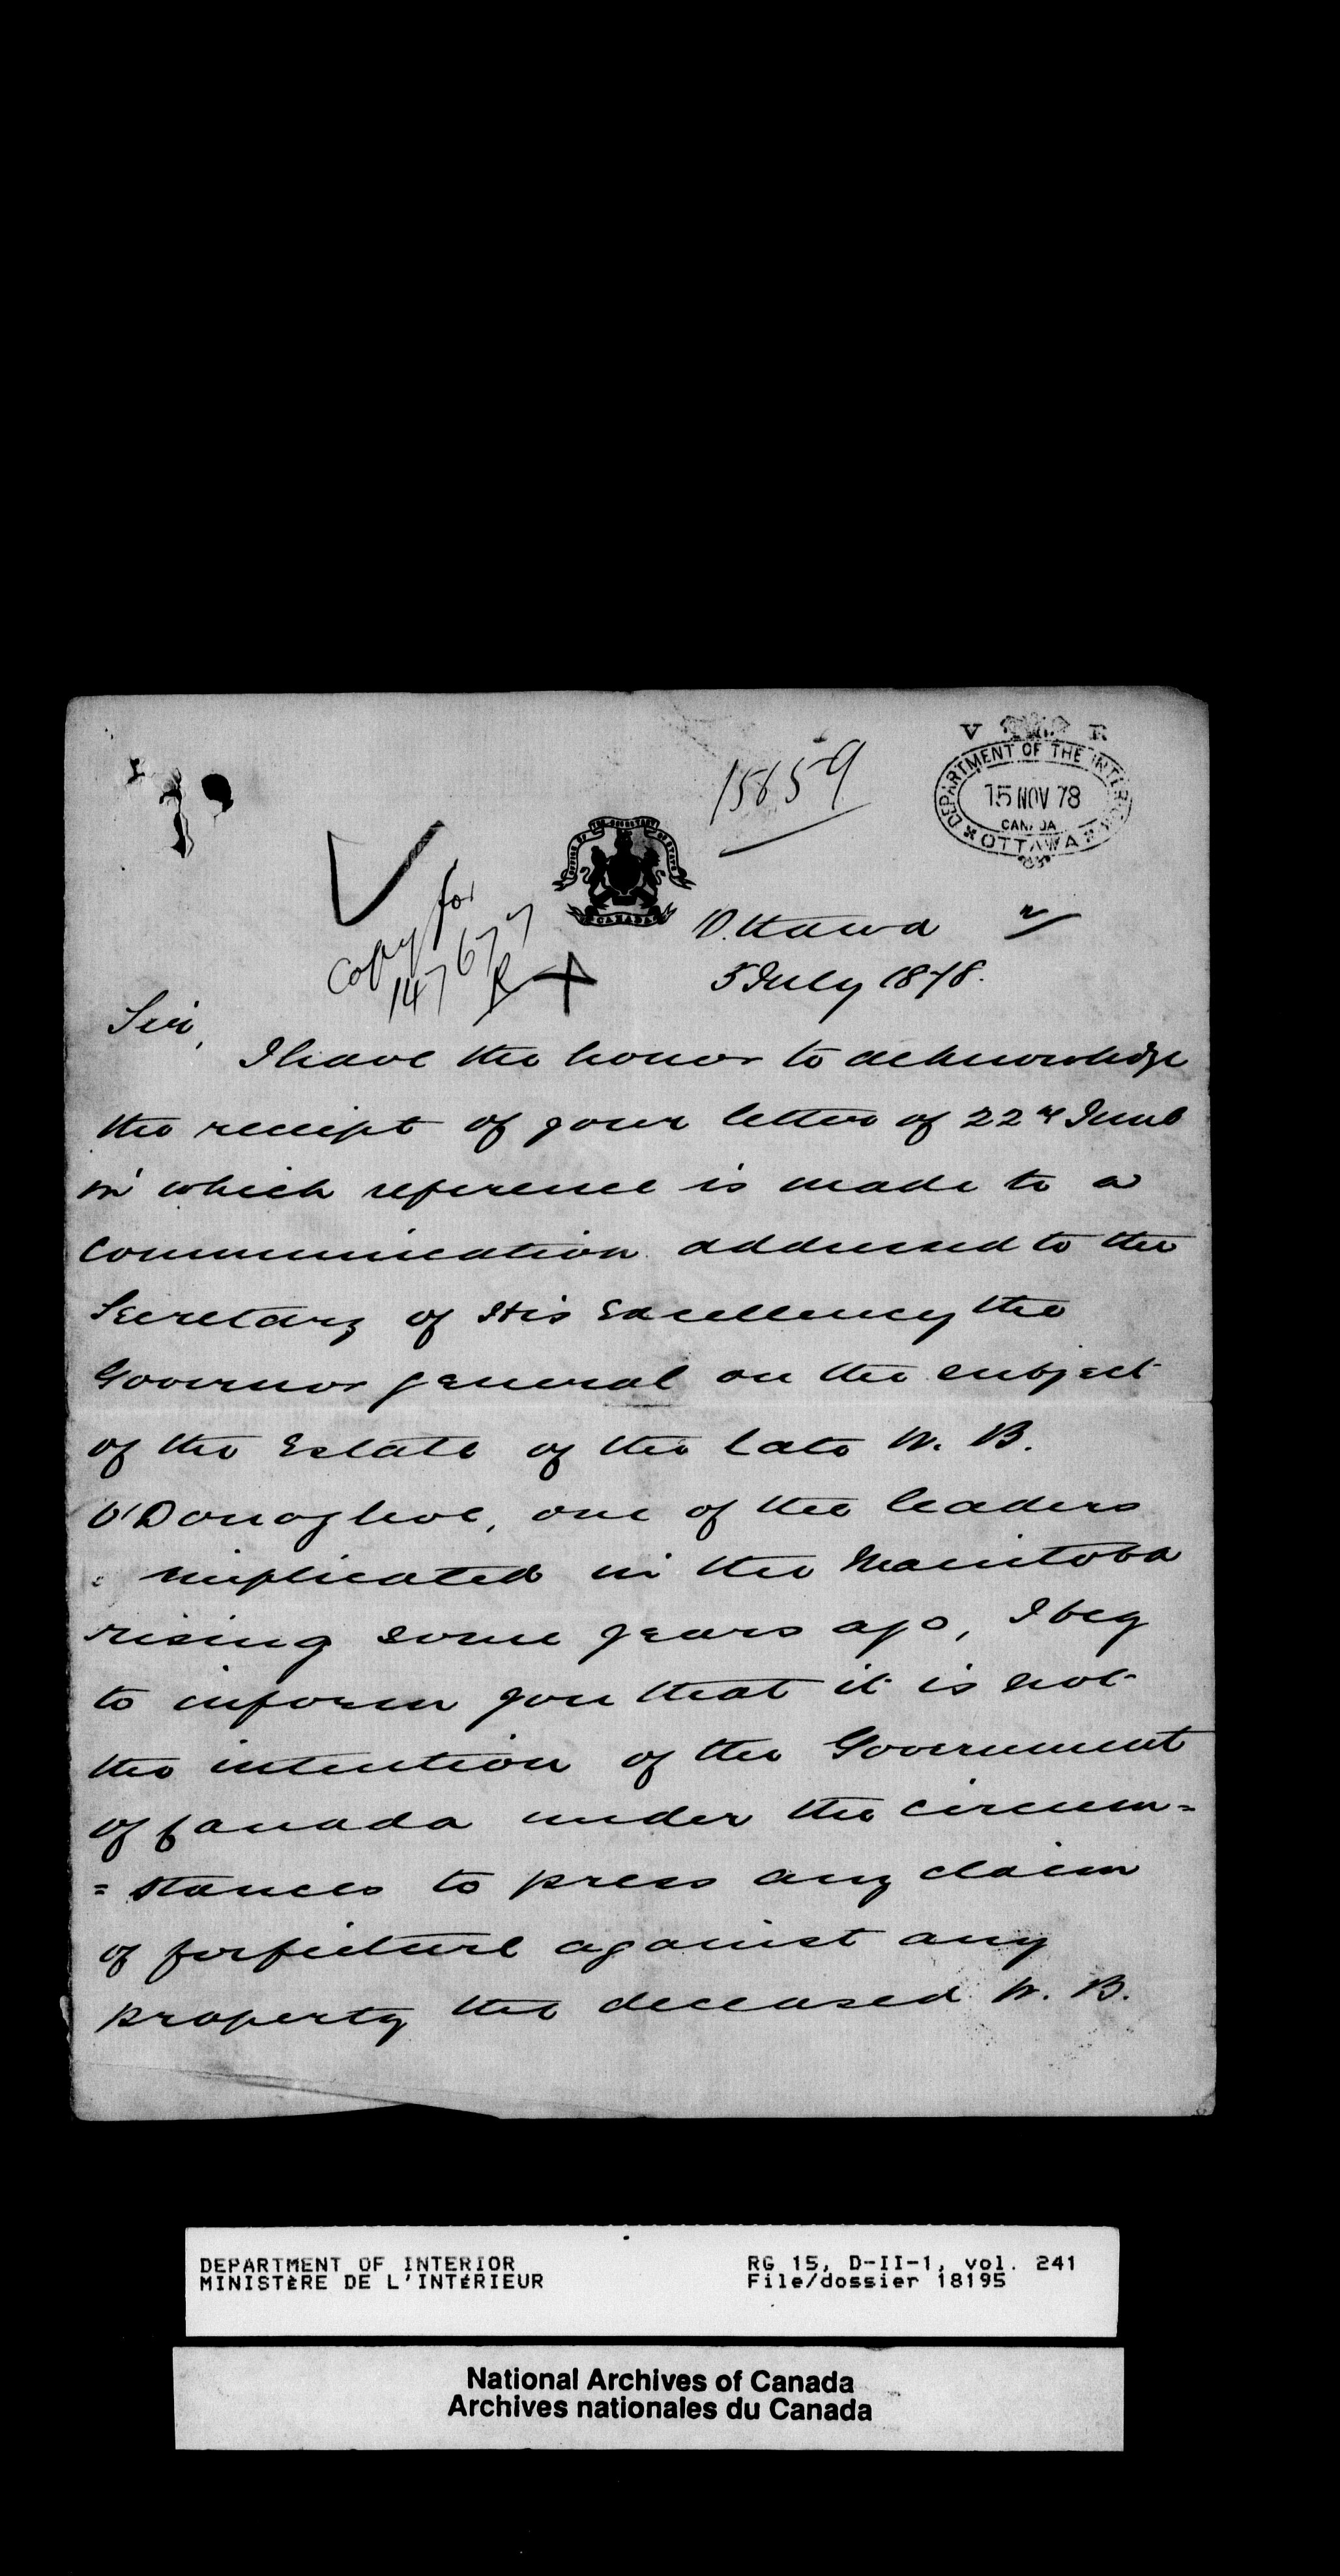 15859
V R
DEPARTMENT OF THE INTERIOR
15 NOV 78
CANADA
OTTAWA
OFFICE OF THE SECRETARY OF STATE
CANADA
Copy for
14767
Ottawa
5 July 1878.
Sir,
I have the honor to acknowledge
the receipt of your letter of 22nd June
in which reference is made to a
communication addressed to the
Secretary of His Excellency the
Governor General on the subject
of the Estate of the late W. B.
O'Donoghoe, one of the leaders
implicated in the Manitoba
rising some years ago, I beg
to inform you that it is not
the intention of the Government
of Canada under the circum=
=stances to press any claim
of forfeiture against any
property the deceased W. B.
DEPARTMENT OF INTERIOR
MINISTÈRE DE L'INTÉRIEUR
RG 15, D-II-1, vol. 241
File/dossier 18195
National Archives of Canada
Archives nationales du Canada